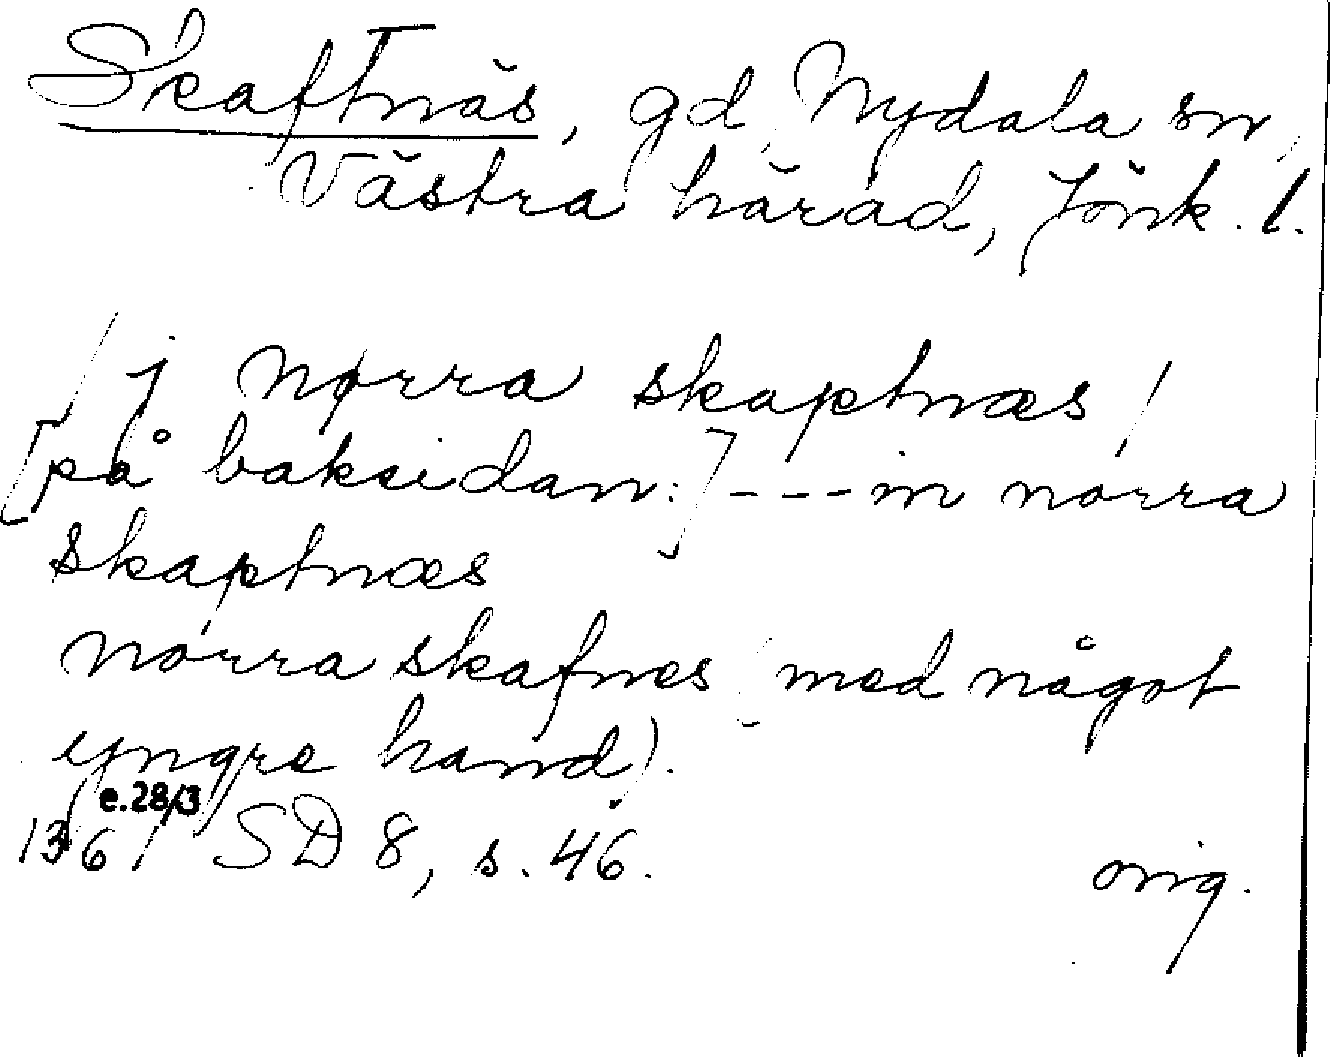 Skaftnäs, gd, Nydala sn,
Västra härad, Jönk. l.
/j nørra skaptnæs/
[på baksidan:] --- in norra
skaptnæs
norra skafnes (med något
yngre hand).
e.28/3
1361 SD 8, s. 46.
orig.